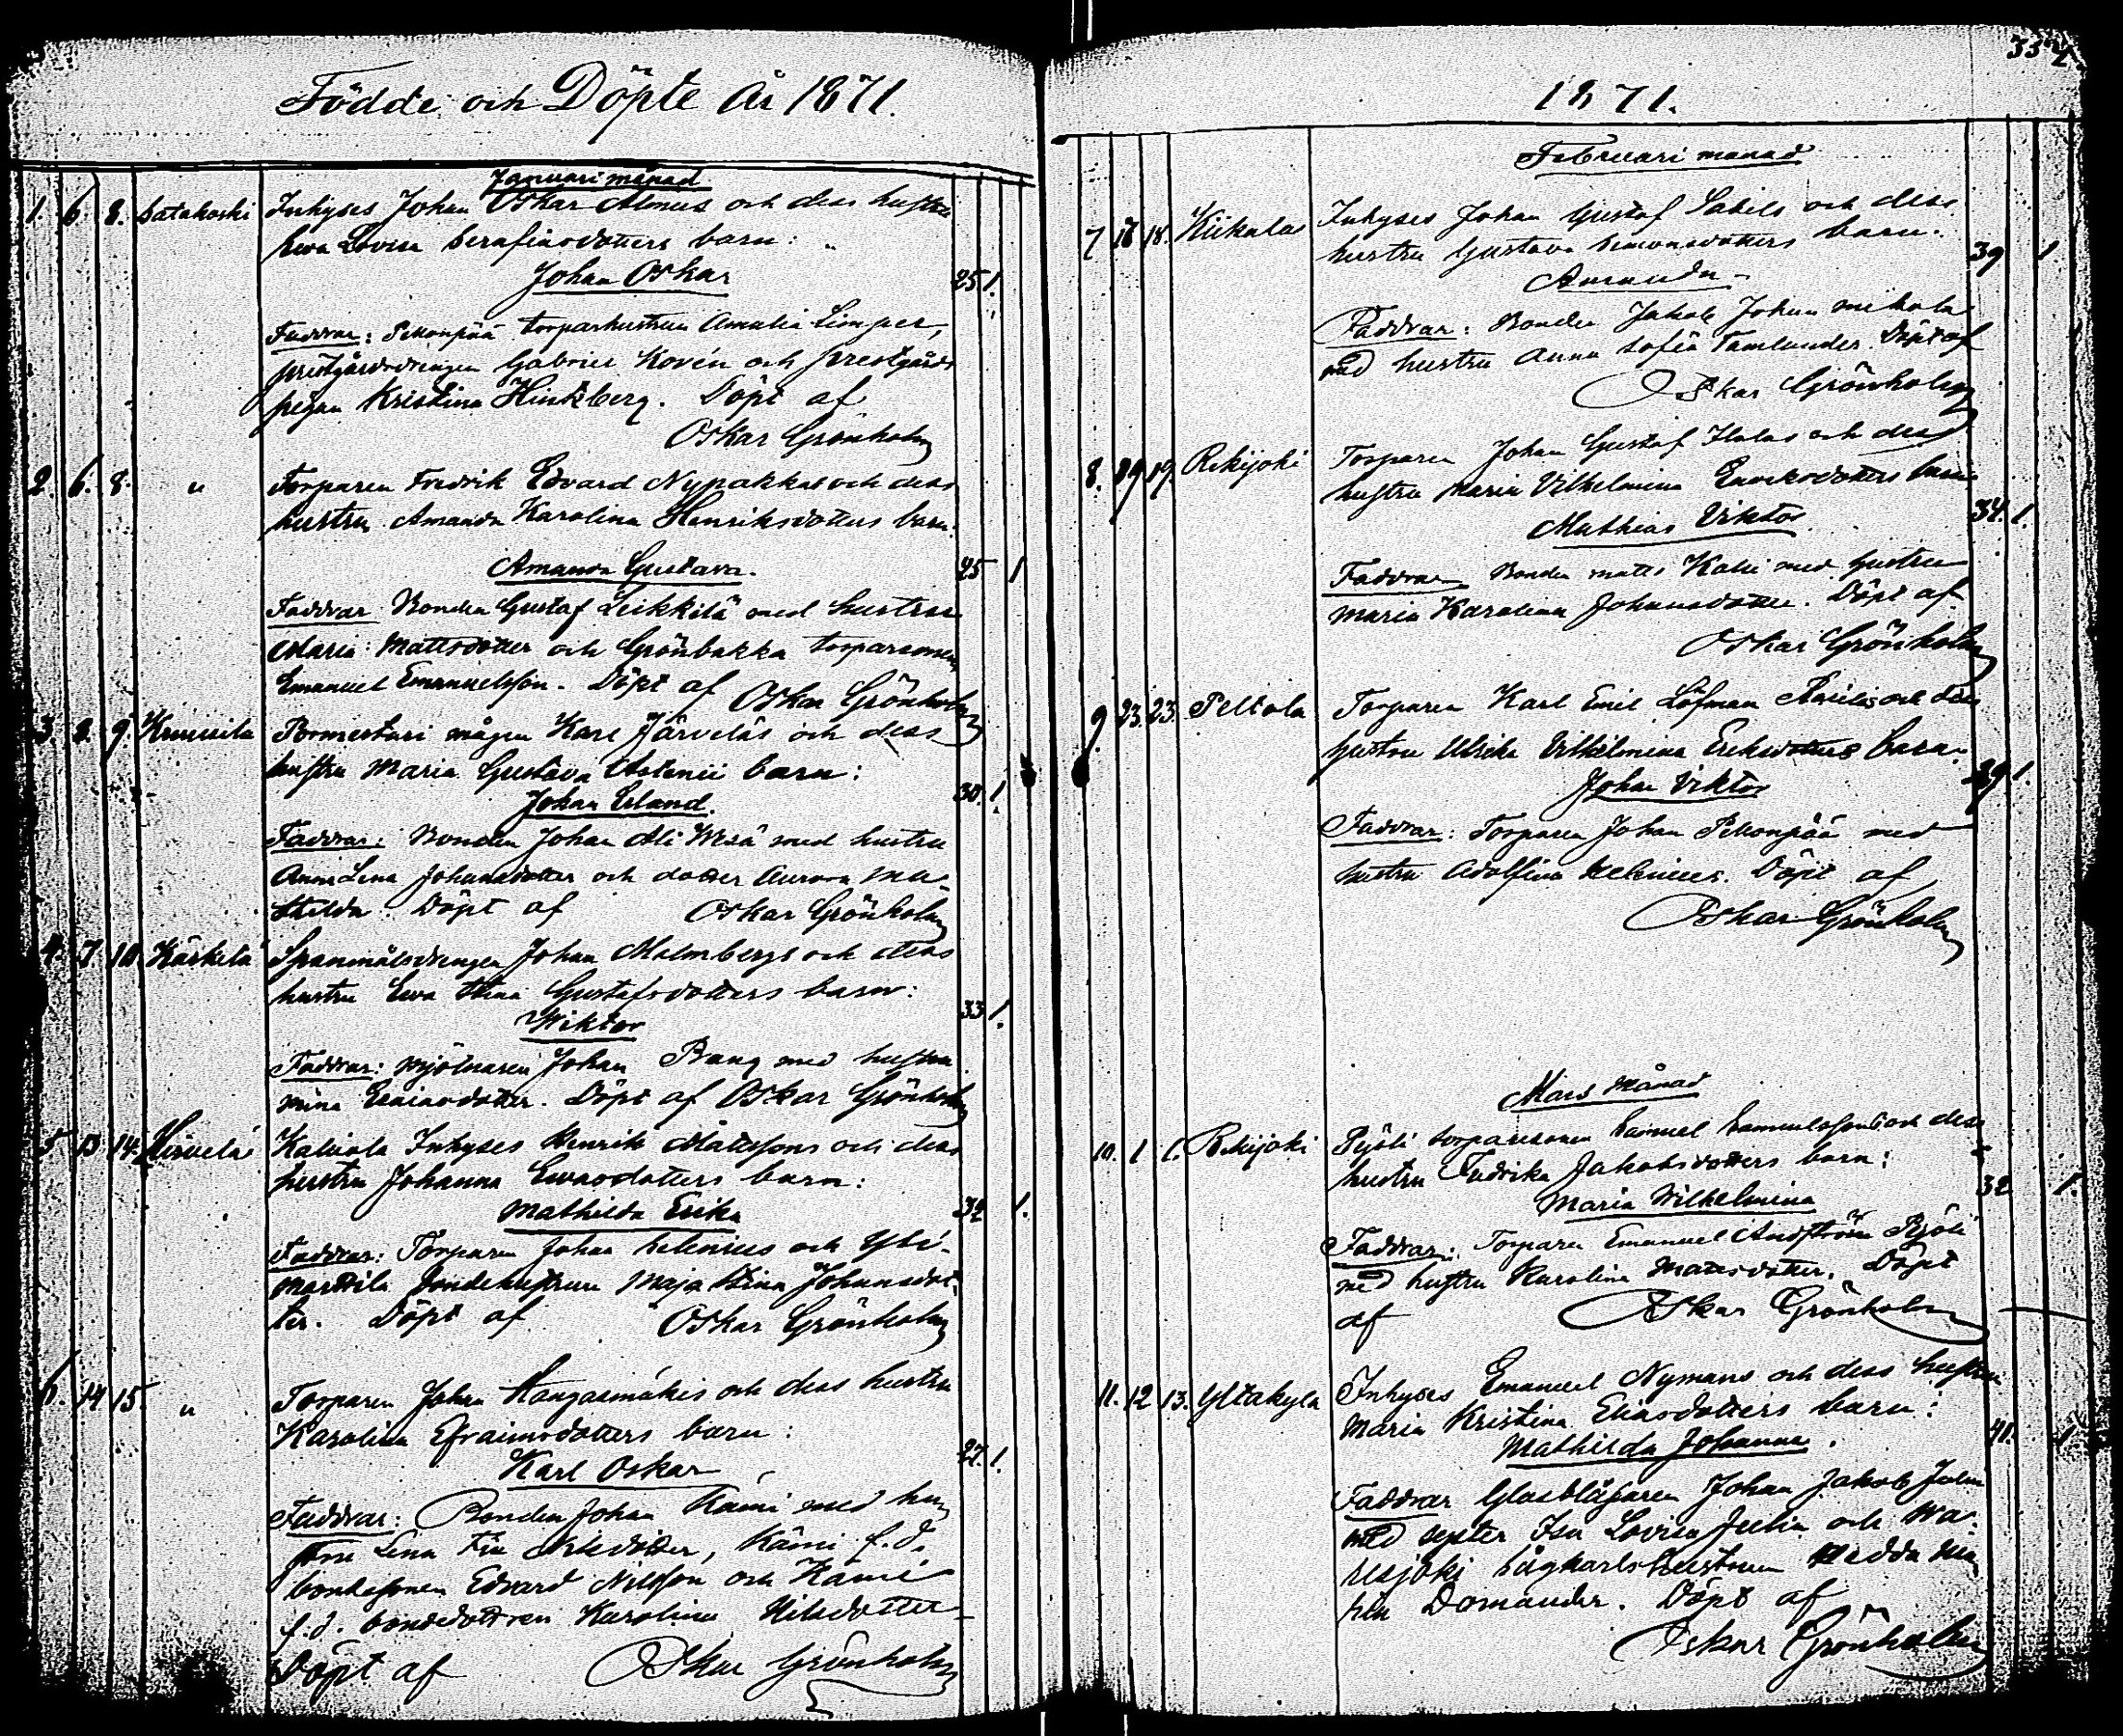 Födde och Döpte År 1871.
Januari månad
1. 6. 8. Satakoski Inhyses Johan Oskar Alenius och dess hustru
Ewa Lovisa Serafiasdotters barn:
Johan Oskar 25 1.
Faddrar: Pekonpää torparhustrun Amalia Limper,
prestgårdsdrengen Gabriel Kovén och prestgårds
pigan Kristina Hintzberg. Döpt af
Oskar Grönholm
2. 6. 8. " Torparen Fredrik Edvard Nypakkas och dess
hustru Amanda Karolina Henriksdotters barn.
Amanda Gustava. 25 1
Faddrar Bonden Gustaf Leikkilä med hustru
Maria Mattsdotter och Grönbakka torparsonen
Emanuel Emanuelsson. Döpt af Oskar Grönholm
3. 8. 9. Kruusila mågen Karl Järveläs och dess
hustru Maria Gustava barn:
Johan Erland. 30. 1.
Faddrar: Bonden Johan Ali Wesä med hustru
Anna Lena Johansdotter och dotter Aurora Ma-
thilda. Döpt af Oskar Grönholm
4. 7. 10 Kärkelä Spanmålsdrengen Johan Malmbergs och dess
hustru Ewa Stina Gustafsdotters barn:
Wiktor 33 1.
Faddrar: Mjölnaren Johan Prang med hustru
Mina Esaiasdotter. Döpt af Oskar Grönholm
5 13 14. Hirvelä Kaliala Inhyses Henrik Mattssons och dess
hustru Johanna Ewasdotters barn:
Mathilda Erika 32 1.
Faddrar: Torparen Johan Selenius och Yli-
Marttila bondehustrun Maja Stina Johansdot-
ter. Döpt af Oskar Grönholm
6. 14 15. " Torparen Johan Kangasmäkis och dess hustru
Karolina Efraimsdotters barn:
Karl Oskar 27. 1.
Faddrar: Bonden Johan Kämi med hu-
stru Lena Fia Eriksdotter, Kämi f.d.
bondesonen Edvard Nilsson och Kämi
f.d. bondedottren Karolina Nilsdotter
Döpt af Oskar Grönholm
1871.
Februari månad
7 18 18. Kiikala Inhyses Johan Gustaf Sabels och dess
hustru Gustava Simonsdotters barn.
Amanda 39 1
Faddrar: Bonden Jakob Johan Mikola
med hustru Anna Sofia Tamlander. Döpt af
Oskar Grönholm
8. 19 19. Rekijoki Torparen Johan Gustaf Ilolas och dess
hustru Maria Vilhelmina barn
Mathias Viktor 34. 1.
Faddrar Bonden Matts Kake med hustru
Maria Karolina Johansdotter. Döpt af
Oskar Grönholm
9. 23. 23. Peltola Torparen Karl Emil Löfman och dess
hustru Ulrika Vilhelmina Eriksdotters barn.
Johan Viktor 29 1.
Faddrar: Torparen Johan Pekonpää med
hustru Adolfina Selenius. Döpt af
Oskar Grönholm
Mars Månad
10. 1 1. Rekijoki Pyöli torparesonen Samuel Samuelssons och dess
hustru Fredrika Jakobsdotters barn:
Maria Wilhelmina 32 1.
Faddrar: Torparen Emanuel Andström Pyöli
med hustru Karolina Mattsdotter. Döpt
af Oskar Grönholm
11. 12 13. Yltäkylä Inhyses Emanuel Nymans och dess hustru
Maria Kristina Eliasdotters barn:
Mathilda Johanna. 41. 1
Faddrar Glasblåsaren Johan Jakob Julin
med syster Isa Lovisa Julin och Wa-
resjoki sågkarlshustrun Hedda
Domander. Döpt af
Oskar Grönholm